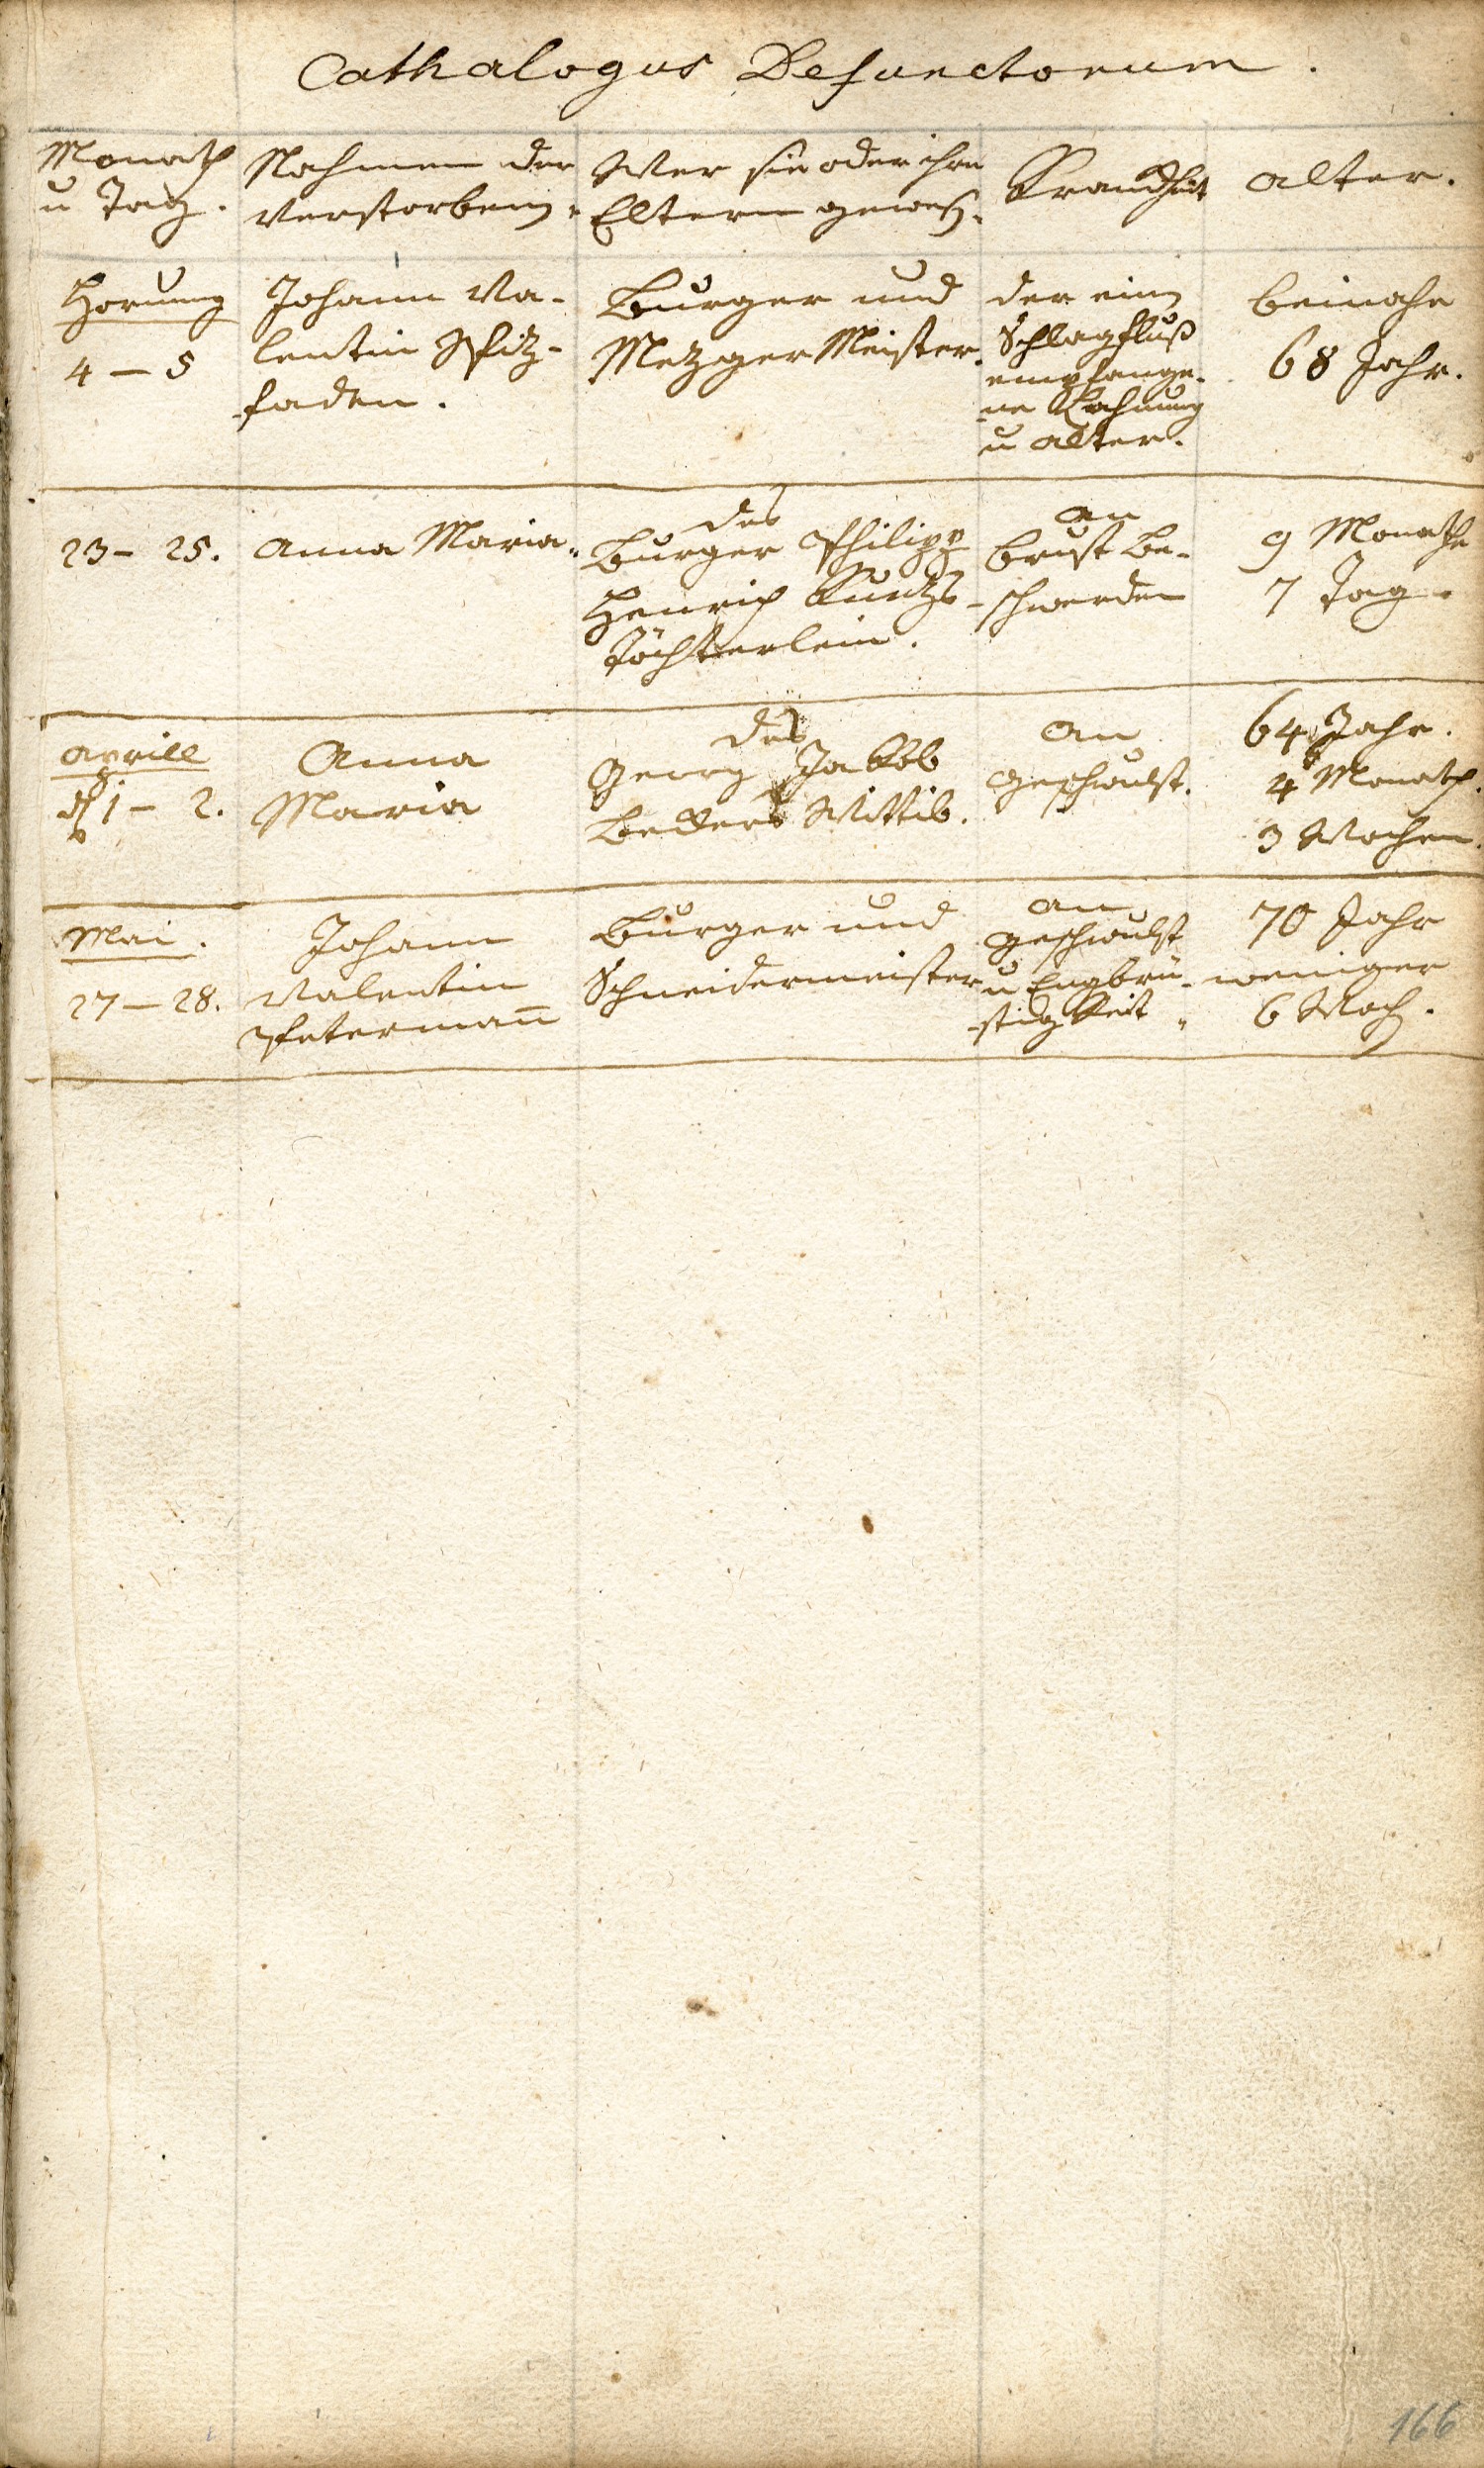 Cathalogus Defunctorum.
Monath
u Tag.
Nahmen der
Verstorbenen.
Wer sie oder ihre
Eltern gewesen.
Kranckheit
Alter.
Hornung
4 – 5
Johann Va-
lentin Spitz-
faden.
Burger und
Metzger Meister.
der ein
Schlagfluß
empfange-
ne Lähmung
u Alter.
beinahe
68 Jahr.
23 – 25.
Anna Maria.
des
Burger Philipp
Henrich Kuntzs
Töchterlein.
an
Brust Be-
schwerden
9 Monathe
7 Tag.
Aprill
1 – 2.
Anna
Maria
des
Georg Jakob
Beckers Wittib.
An
Geschwulst.
64 Jahr.
4 Monath.
3 Wochen.
Mai.
27 – 28.
Johann
Valentin
Petermañ
Burger und
Schneidermeister
an
Geschwulst
u Engbrü-
stigkeit.
70 Jahr
weniger
6 Woch.
166